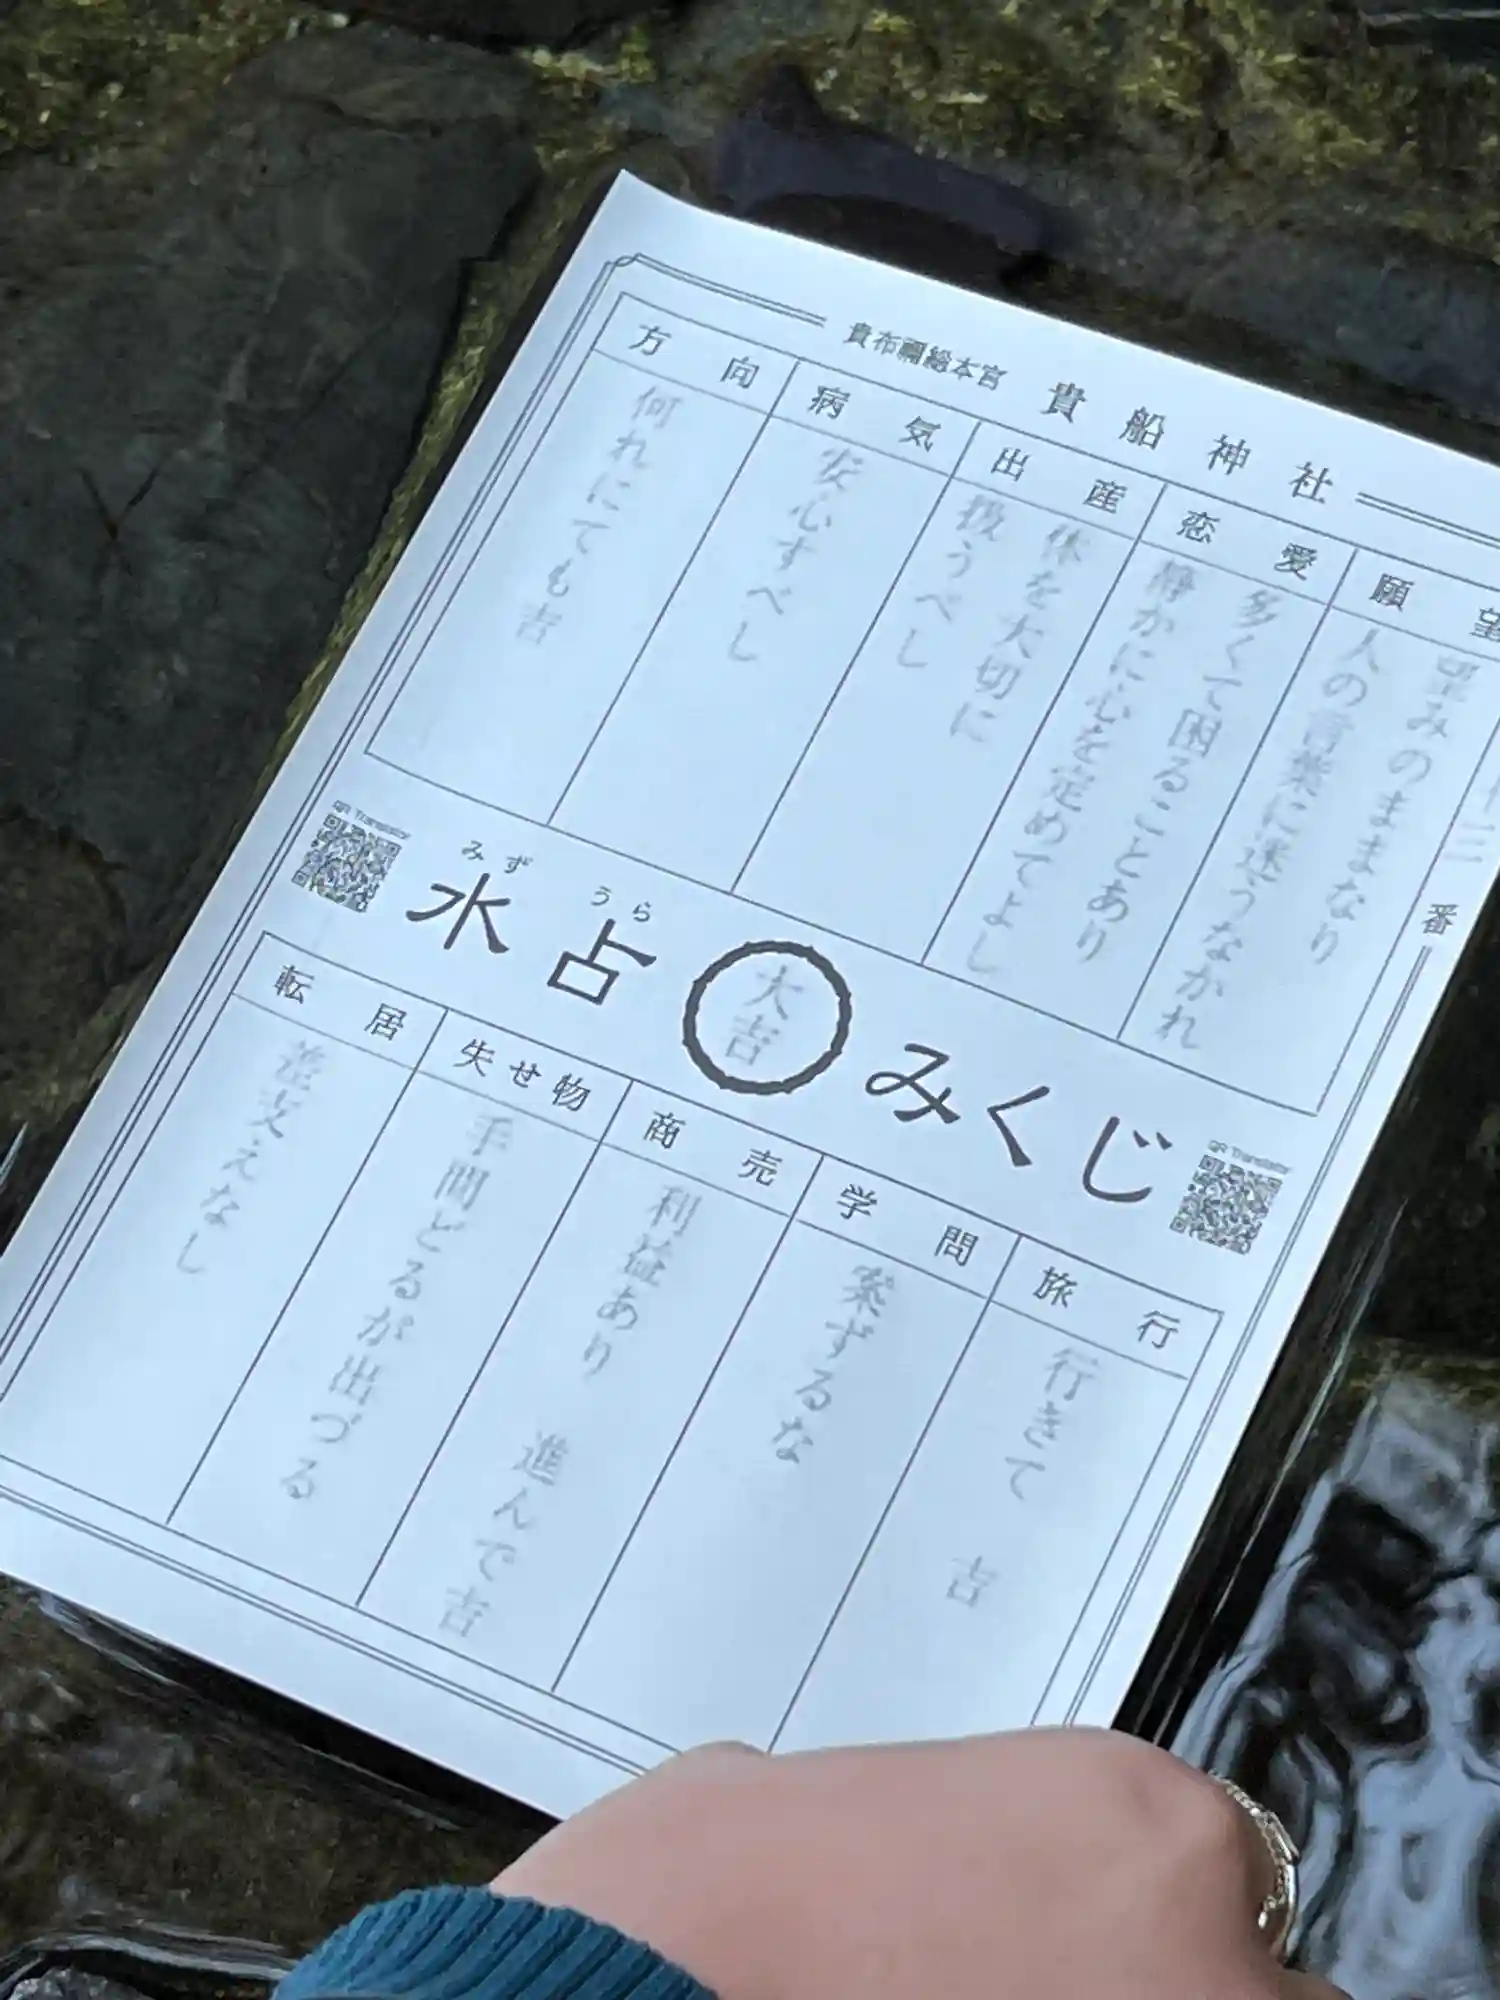 貴布禰総本宮 貴船神社
願望
望みのままなり
人の言葉に迷うなかれ
恋愛
多くて困ることあり
静かに心を定めてよし
出産
体を大切に
扱うべし
病気
安心すべし
方向
何れにても吉
三番
QR Translator
みず うら
水占 大吉 みくじ
QR Translator
旅行
行きて 吉
学問
案ずるな
商売
利益あり 進んで吉
失せ物
手間どるが出づる
転居
差支えなし